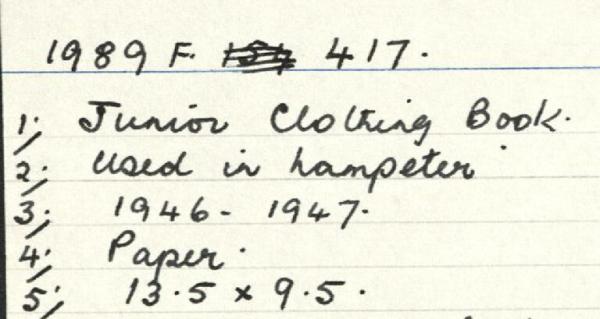 1989 F. 417.
1. Junior Clothing Book.
2. Used in Lampeter
3. 1946 - 1947.
4. Paper.
5. 13.5 x 9.5.